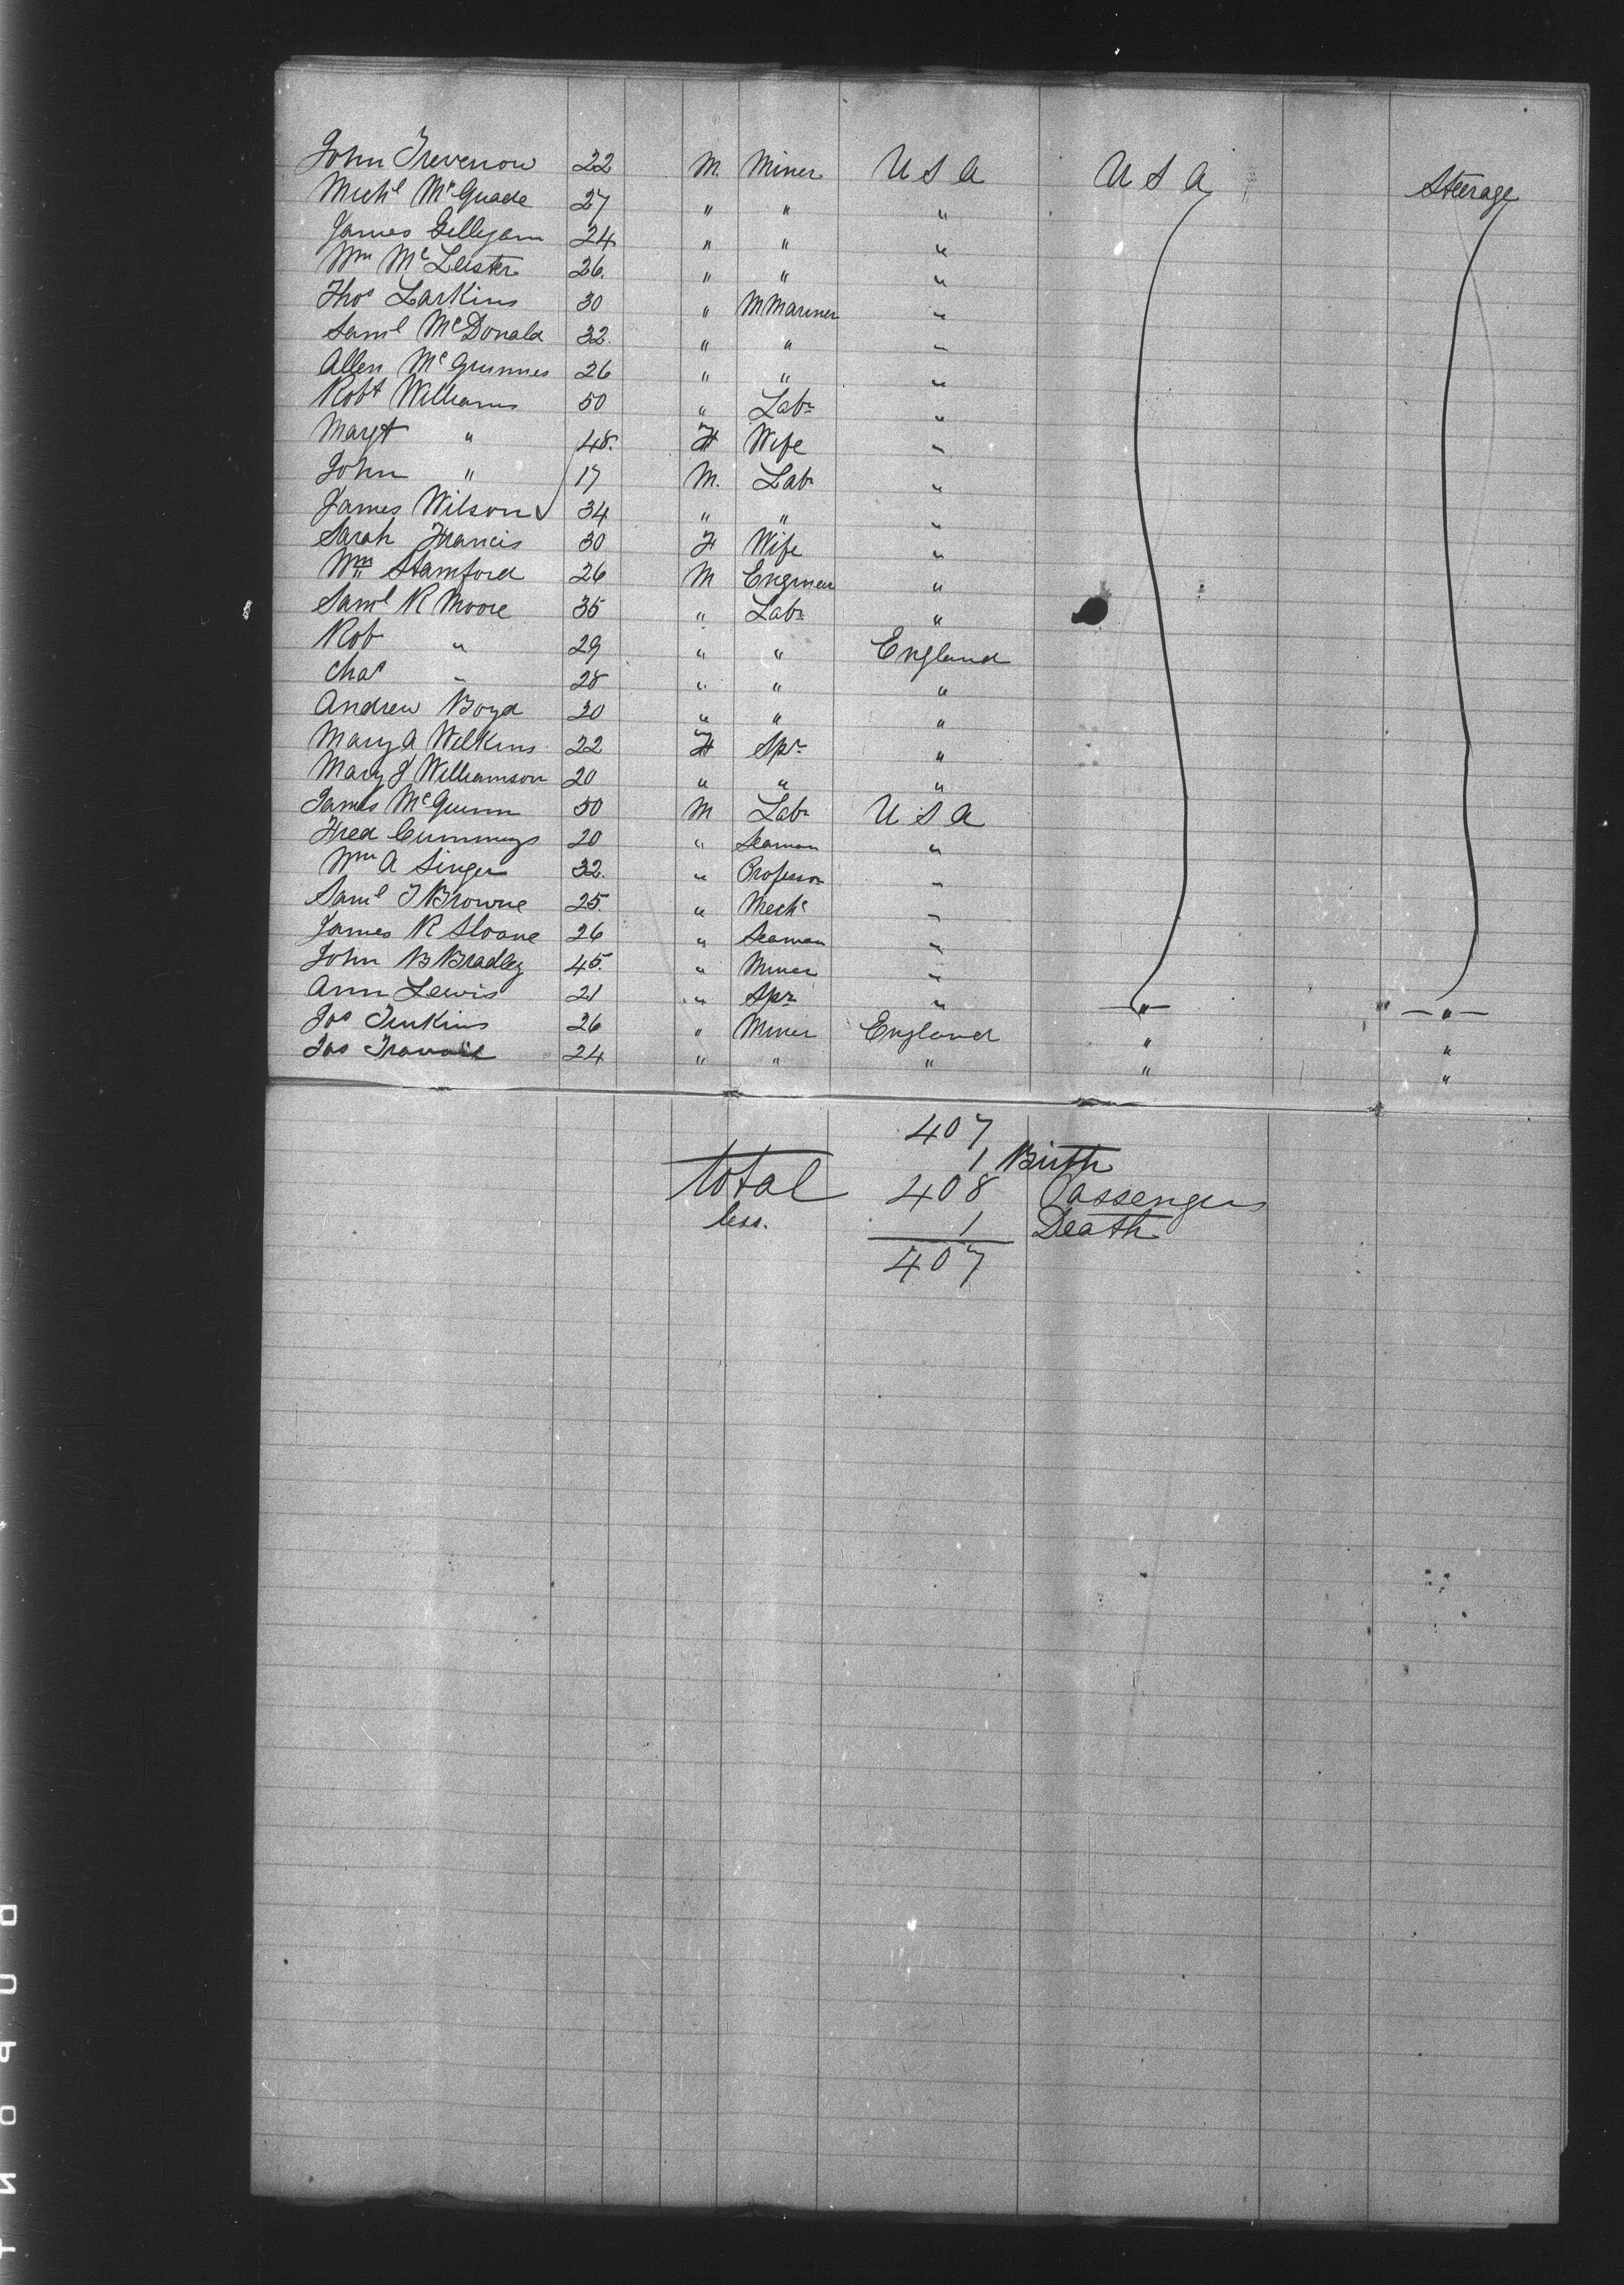 John Trevenow 22 M. Miner U S A U S A Steerage
Michl McGuade 27 " " "
James Gillygam 24 " " "
Wm McLester 26. " " "
Thos Larkins 30 " M Mariner "
Saml McDonald 32. " " "
Allen McGunnes 26 " " "
Robt Williams 50 " Labr "
Margt " 48. F Wife "
John " 17 M. Labr "
James Wilson 34 " " "
Sarah Francis 30 F Wife "
Wm Stamford 26 M Engineer "
Saml R Moore 35 " Labr "
Rob " 29 " " England
Chas " 28 " " "
Andrew Boyd 20 " " "
Mary A Wilkins 22 F Spr "
Mary J Williamson 20 " " "
James McGunn 50 M Labr U S A
Fred Cummings 20 " Seaman "
Wm A Singer 32. " Professor "
Saml T Browne 25. " Mechc "
James R Sloane 26 " Seaman "
John B Bradley 45. " Miner "
Ann Lewis 21 " Spr " " "
Jos Jenkins 26 " Miner England " "
Jas 24 " " " " "
407
1 Birth
total 408 Passengers
less. 1 Death
407